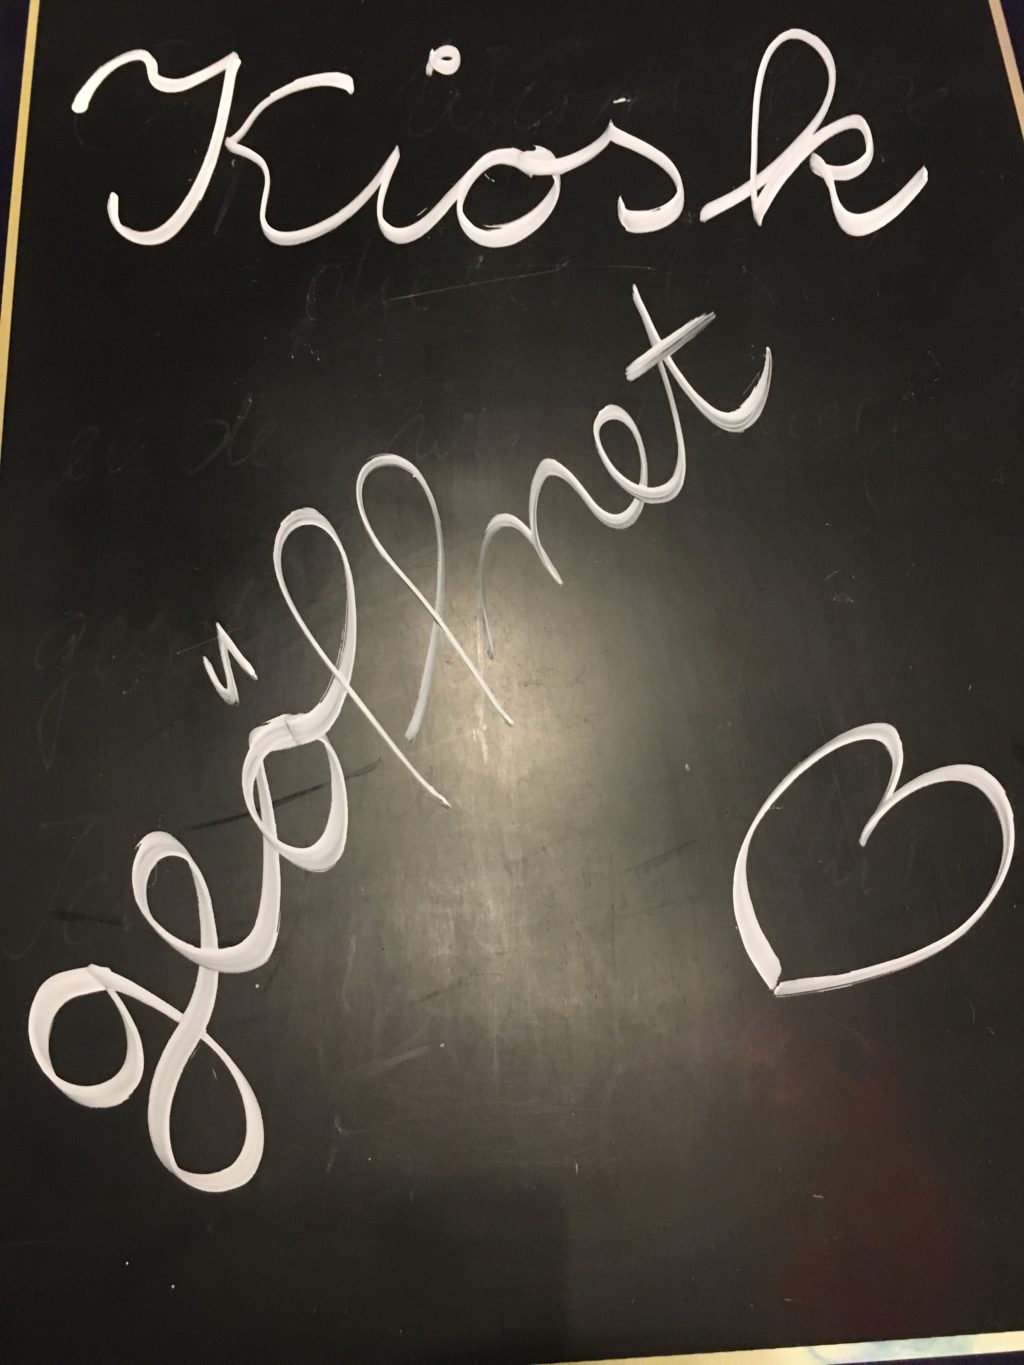 Kiosk
geöffnet